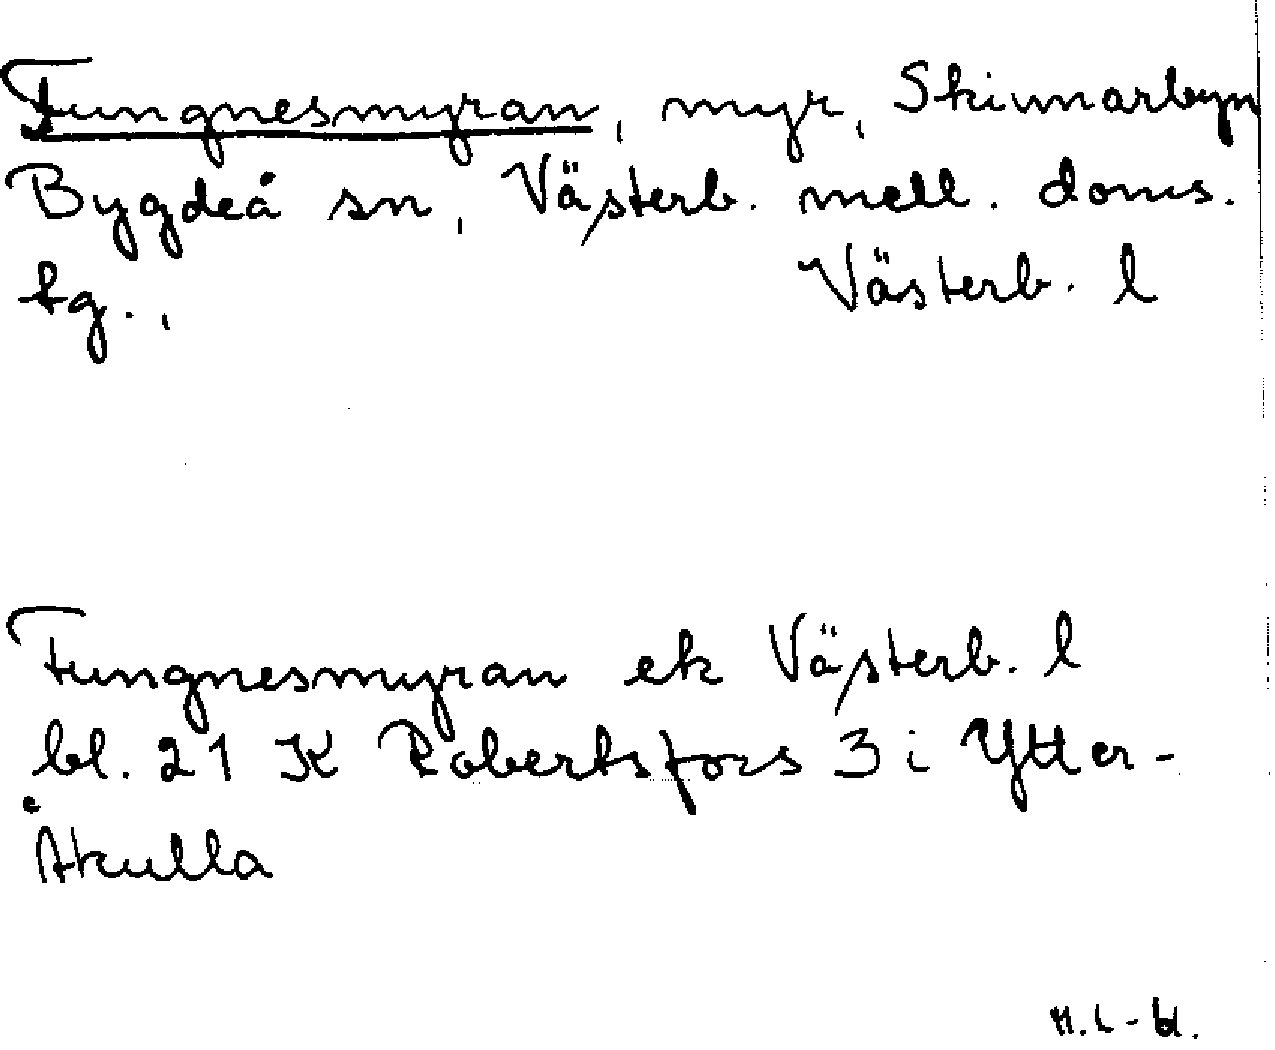 Tungnesmyran, myr, Skinnarbyn
Bygdeå sn, Västerb. mell. doms.
tg., Västerb. l
Tungnesmyran ek Västerb. l
bl. 21 K Robertsfors 3 i Ytter-
Åkulla